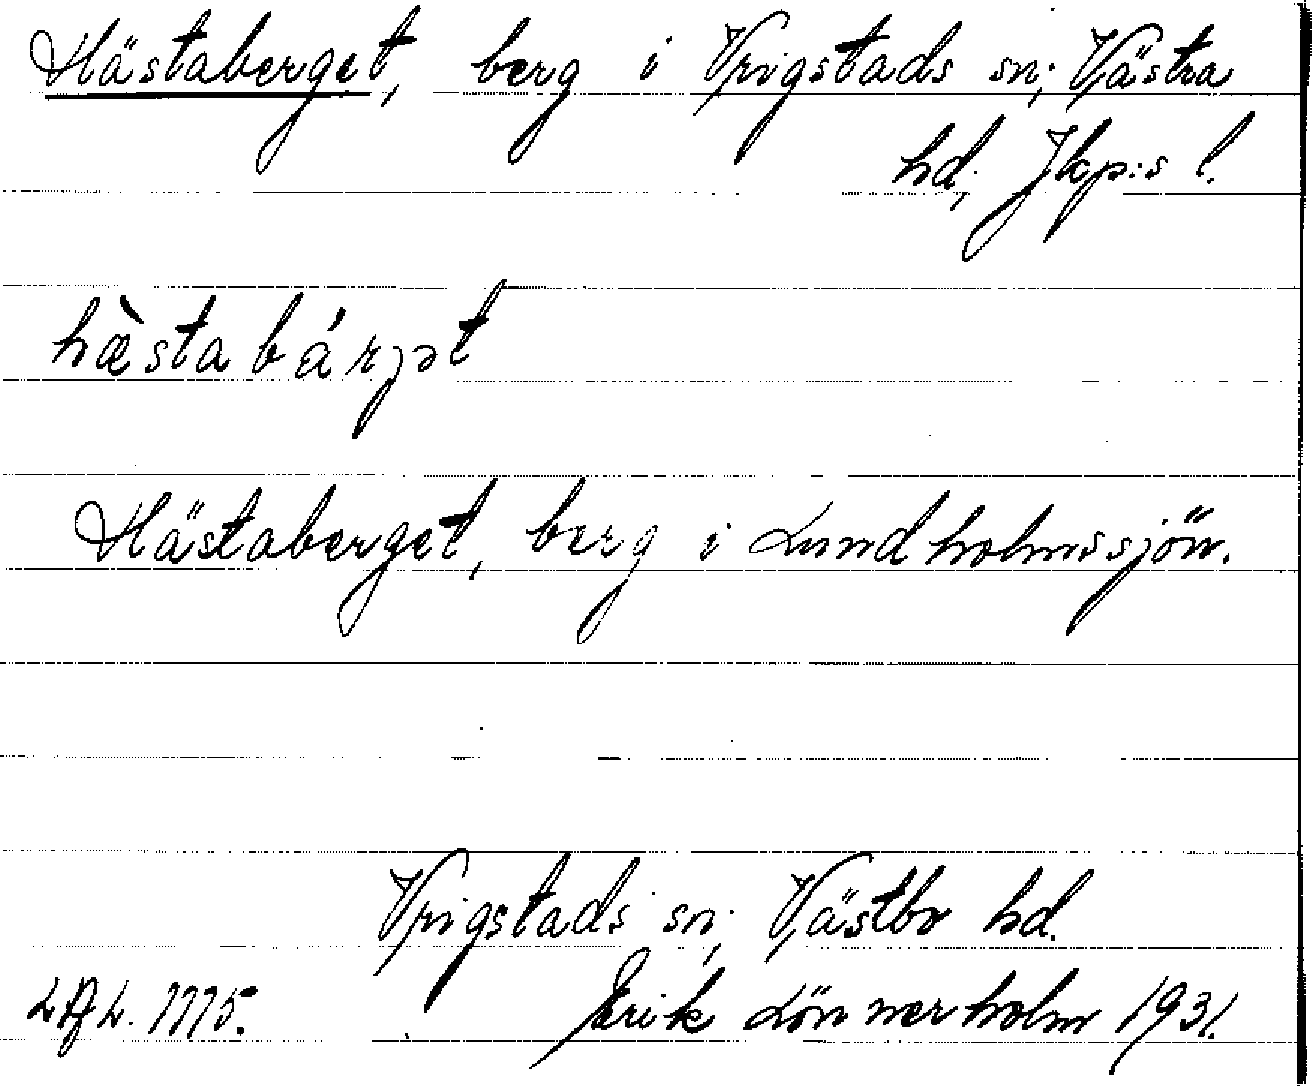 Hästaberget, berg i Vrigstads sn; Västra
hd; Jkp:s l.
hæ̀stabárjət
Hästaberget, berg i Lundholmssjön.
Vrigstads sn; Västbo hd.
Erik Lönnerholm 1931.